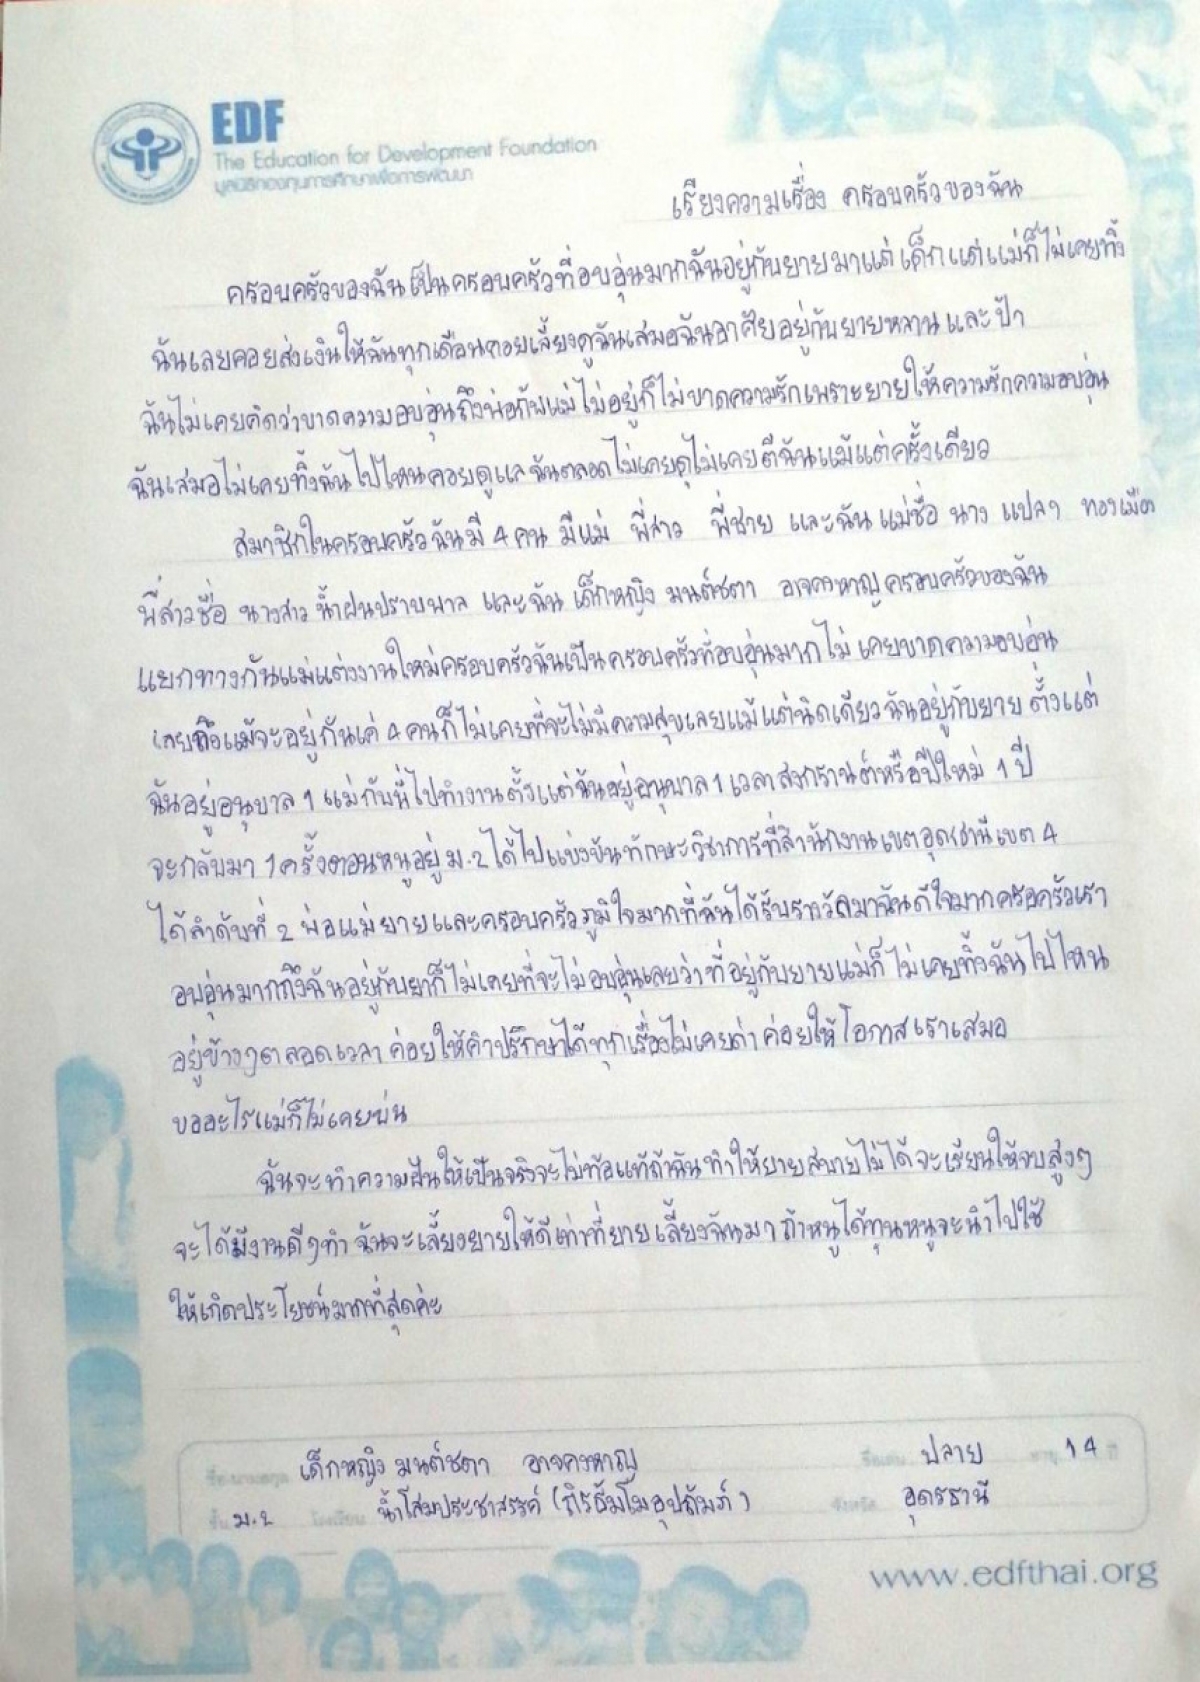 EDF
The Education for Development Foundation
มูลนิธิกองทุนการศึกษาเพื่อการพัฒนา
เรียงความเรื่อง ครอบครัวของฉัน
ครอบครัวของฉันเป็นครอบครัวที่อบอุ่นมากฉันอยู่กับยายมาแต่เด็กแต่แม่ก็ไม่เคยทิ้ง
ฉันเลยคอยส่งเงินให้ฉันทุกเดือนคอยเลี้ยงดูฉันเสมอฉันอาศัยอยู่กับยายหลานและป้า
ฉันไม่เคยคิดว่าขาดความอบอุ่นถึงพ่อกับแม่ไม่อยู่ก็ไม่ขาดความรักเพราะยายให้ความรักความอบอุ่น
ฉันเสมอไม่เคยทิ้งฉันไปไหนคอยดูแลฉันตลอดไม่เคยดุไม่เคยตีฉันแม้แต่ครั้งเดียว
สมาชิกในครอบครัวฉันมี 4 คน มีแม่ พี่สาว พี่ชาย และฉัน แม่ชื่อ นาง แปลง ทองเมือ
พี่สาวชื่อ นางสาว น้ำฝนปราบพาล และฉัน เด็กหญิง มนต์ชตา อาจคงหาญ ครอบครัวของฉัน
แยกทางกันแม่แต่งงานใหม่ครอบครัวฉันเป็นครอบครัวที่อบอุ่นมากไม่ เคยขาดความอบอุ่น
เลยถึงแม้จะอยู่กันแค่ 4 คนก็ไม่เคยที่จะไม่มีความสุขเลยแม้แต่นิดเดียว ฉันอยู่กับยาย ตั้งแต่
ฉันอยู่อนุบาล 1 แม่กับพี่ไปทำงานตั้งแต่ฉันอยู่อนุบาล 1 เวลาสงกรานต์หรือปีใหม่ 1 ปี
จะกลับมา 1 ครั้งตอนหนูอยู่ ม.2 ได้ไปแข่งขันทักษะวิชาการที่สำนักงานเขตอุดรธานีเขต 4
ได้ลำดับที่ 2 พ่อแม่ยายและครอบครัวภูมิใจมากที่ฉันได้รับรางวัลมาฉันดีใจมากครอครัวเรา
อบอุ่นมากถึงฉันอยู่กับยาก็ไม่เคยที่จะไม่อบอุ่นเลยว่าที่อยู่กับยายแม่ก็ไม่เคยทิ้งฉันไปไหน
อยู่ข้างๆตลอดเวลา ค่อยให้คำปรึกษาได้ทุกเรื่องไม่เคยด่า ค่อยให้โอกาสเราเสมอ
ขออะไรแม่ก็ไม่เคยบ่น
ฉันจะทำความฝันให้เป็นจริงจะไม่ท้อแท้ถ้าฉันทำให้ยายสบายไม่ได้ จะเรียนให้จบสูงๆ
จะได้มีงานดีๆทำ ฉันจะเลี้ยงยายให้ดีเท่าที่ยายเลี้ยงฉันมา ถ้าหนูได้ทุนหนูจะนำไปใช้
ให้เกิดประโยชน์มากที่สุดค่ะ
ชื่อ-นามสกุล เด็กหญิง มนต์ชตา อาจคงหาญ ชื่อเล่น ปลาย อายุ 14 ปี
ชั้น ม.2 โรงเรียน น้ำโสมประชาสรรค์ จังหวัด อุดรธานี
www.edfthai.org